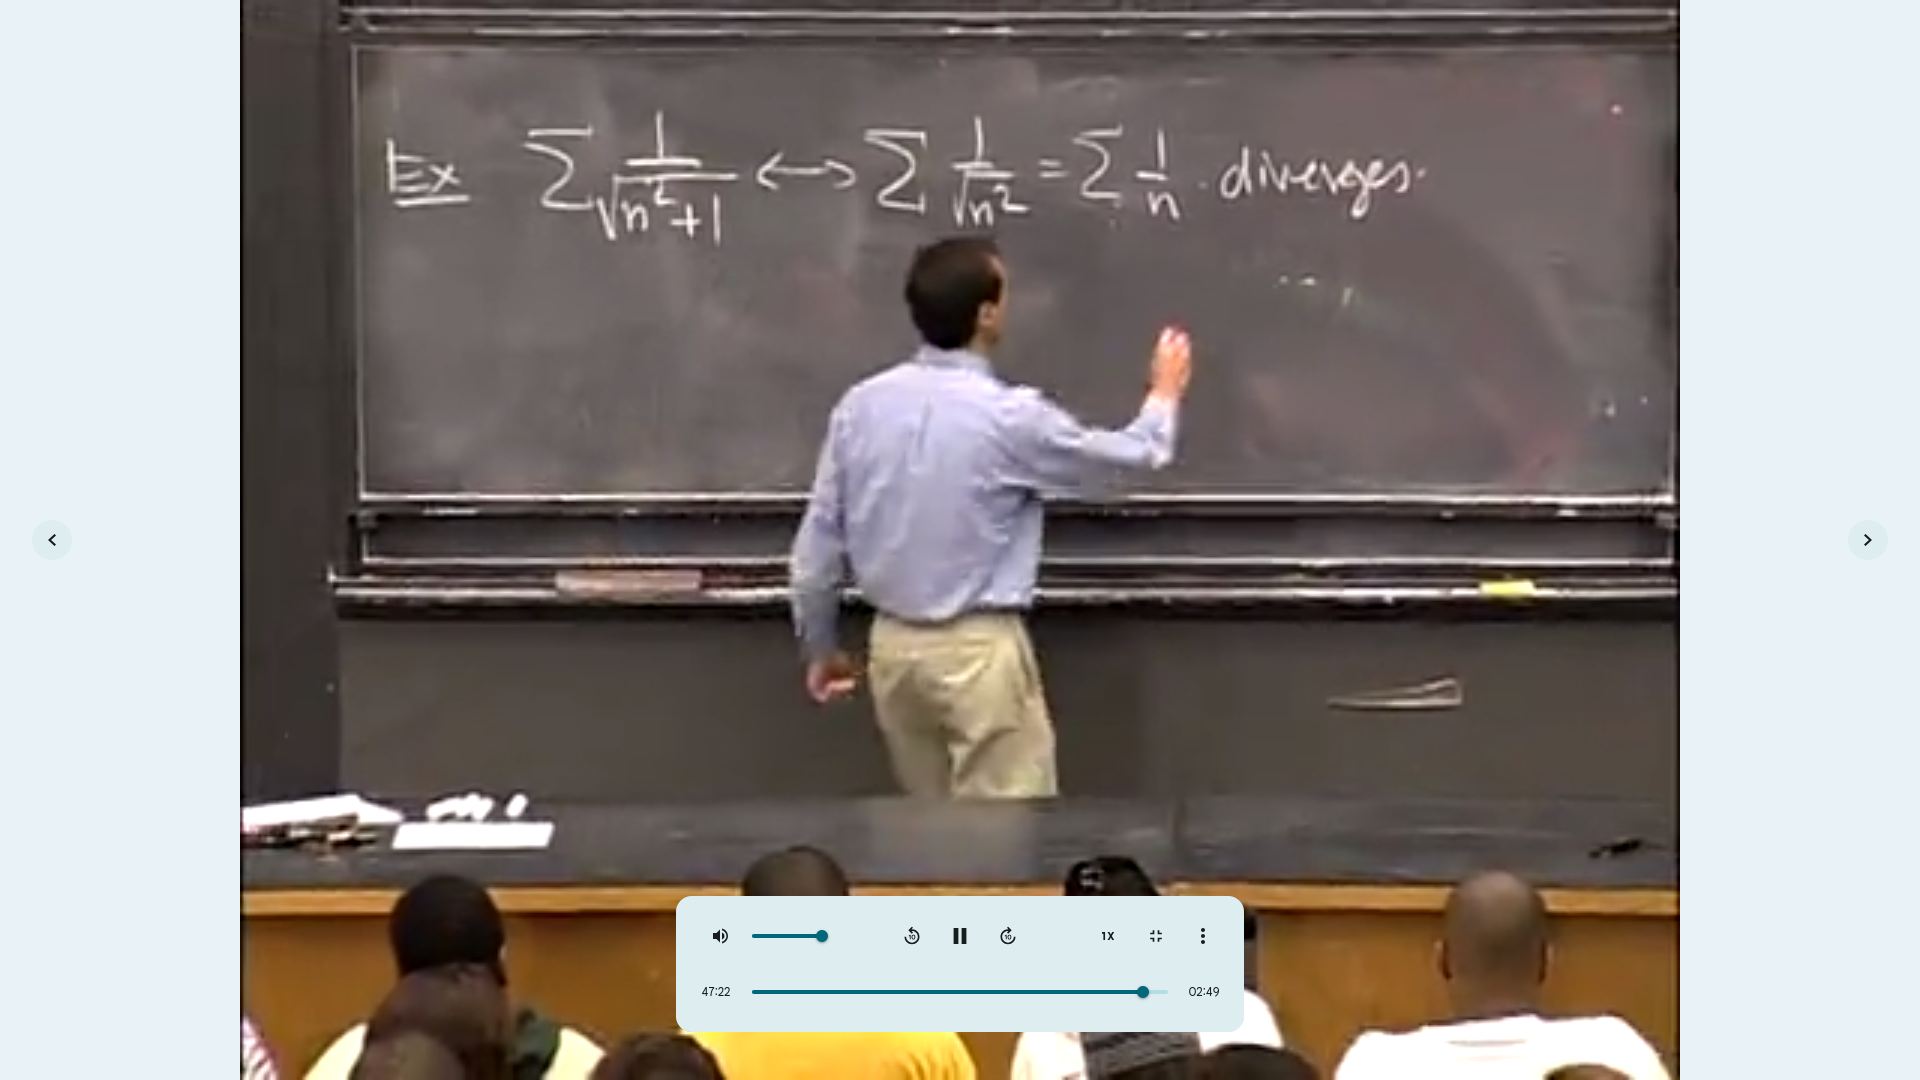 Ex ∑ 1/√(n²+1) ↔ ∑ 1/√(n²) = ∑ 1/n . diverges.
10 10 1X
47:22 02:49